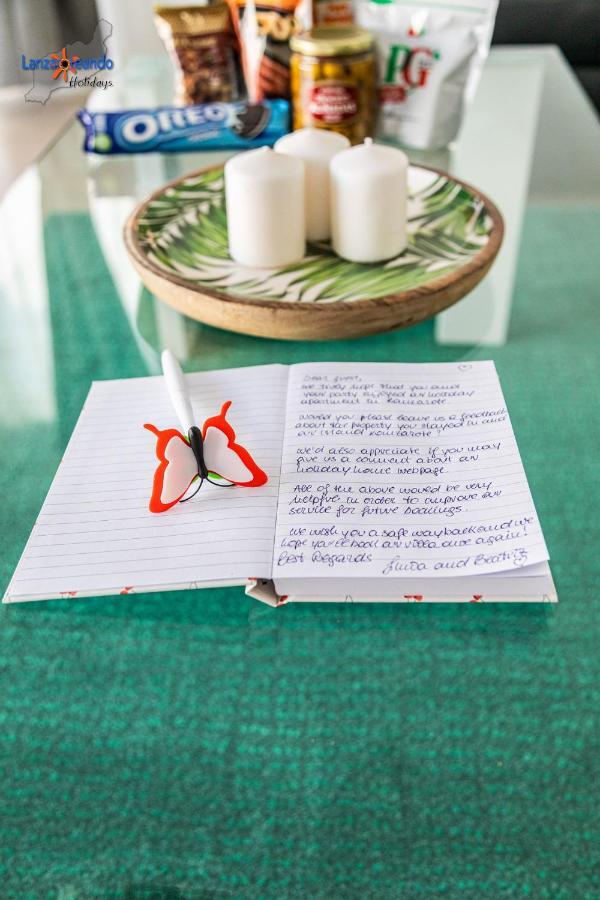 Lanzaroteando
Holidays
OREO
PG
Dear guest,
We truly hope that you and
your party enjoyed our holiday
apartment in Lanzarote.
Would you please leave us a feedback
about the property you stayed in and
our island Lanzarote?
We'd also appreciate if you may
give us a comment about our
holiday home webpage.
All of the above would be very
helpful in order to improve our
service for future bookings.
We wish you a safe way back and we
hope you'll book our villa once again!
Best Regards
and Beatriz